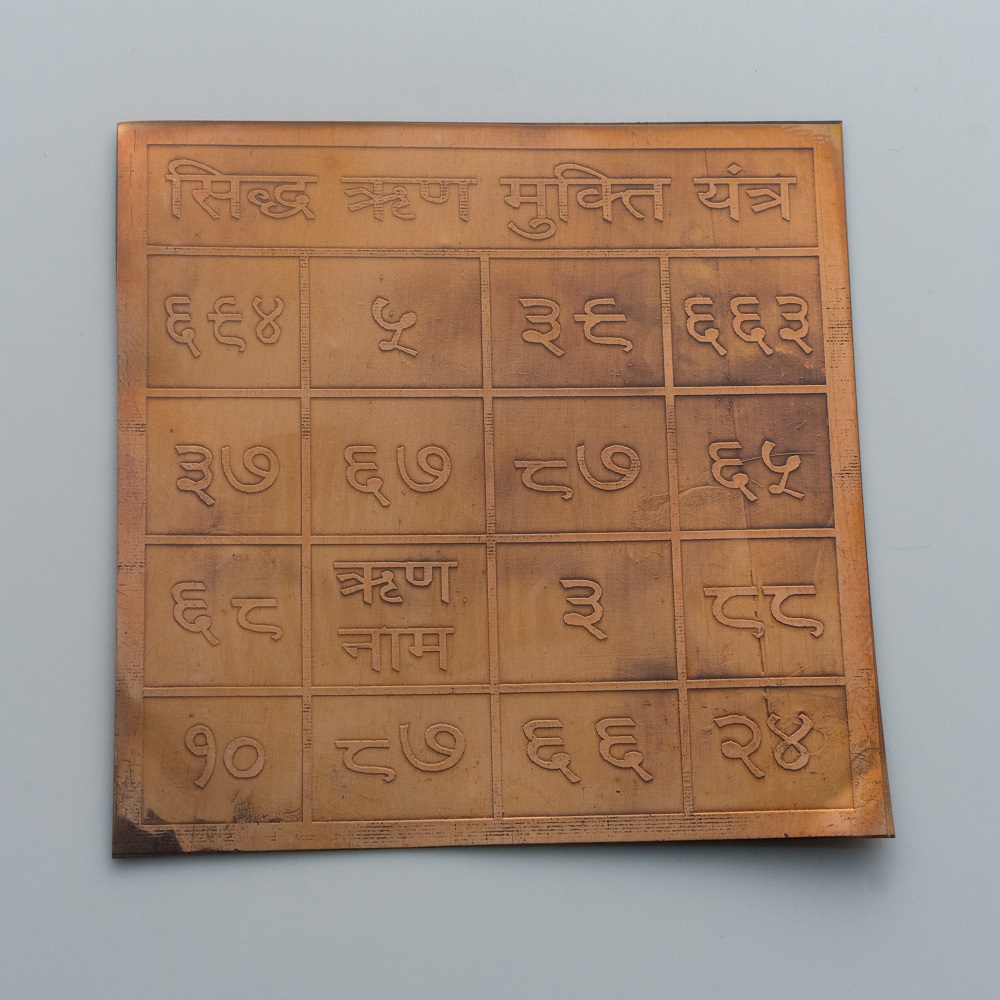 सिद्ध ऋण मुक्ति यंत्र
६९४ ५ ३९ ६६३
३७ ६७ ८७ ६५
६८ ऋण नाम ३ ८८
१० ८७ ६६ २४